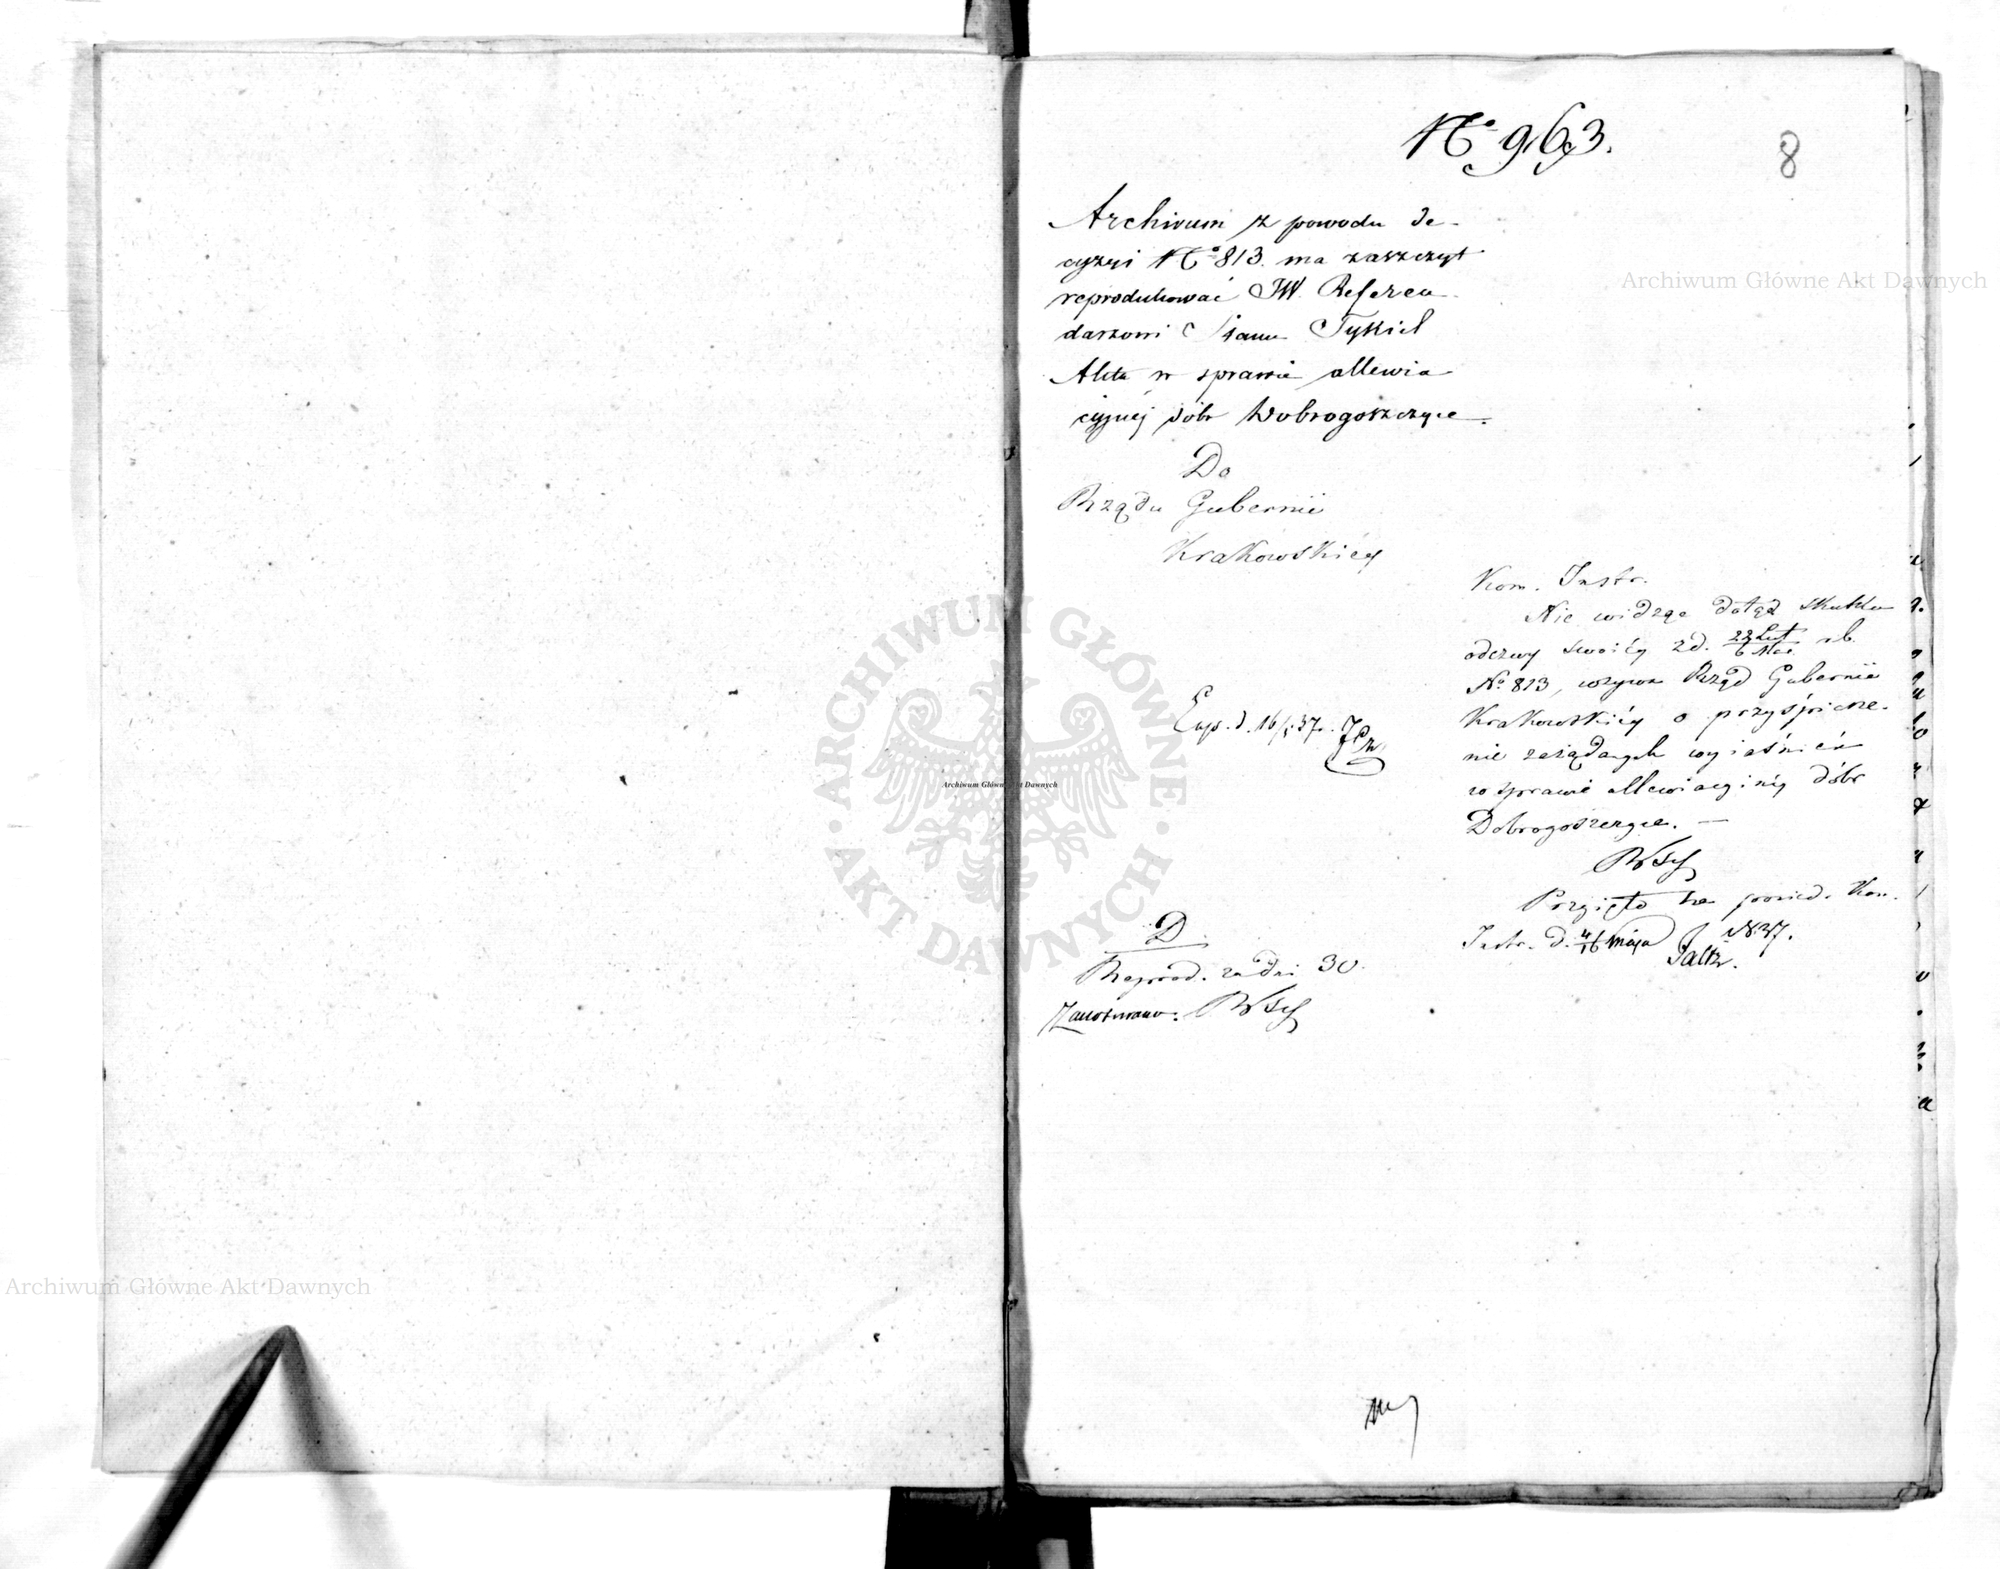 No 963.
8
Archivum z powodu de-
cyzyi No 813. ma zaszczyt
reprodukować JW. Referen-
darzowi Stanu Tykiel
Akta w sprawie allewia-
cyjnej dóbr Dobrogoszczyce.
Do
Rządu Gubernii
Krakowskiéy
Kom. Instr.
Nie widząc dotąd skutku
odezwy swoiéy z d. 22 Lut / 6 Mar. r.b.
No 813, wzywa Rząd Gubernii
Krakowskiéy o przyśpiesze-
nie zażądanych wyiaśnień
w sprawie allewiacyinéy dóbr
Dobrogoszczyce. —
Exp. d. 16/5 37 r.
Przyięto na posied. Kom.
Instr. d. 4/16 maja 1837.
D
Reprod. za dni 30.
Zanotowano.
Archiwum Główne Akt Dawnych
Archiwum Główne Akt Dawnych
Archiwum Główne Akt Dawnych
ARCHIWUM GŁÓWNE
AKT DAWNYCH